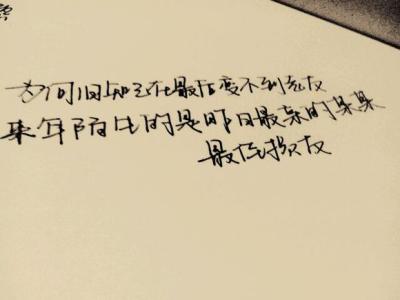 为何旧知己在最后变不到老友
来年陌生的是昨日最亲的某某
最佳损友